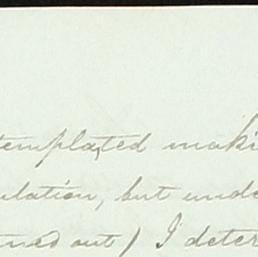 templated maki
ulation, but unde
ned out) I deter